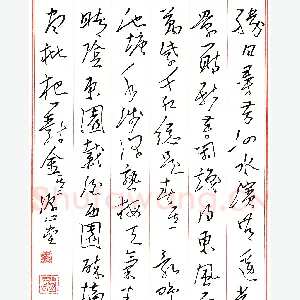 勝日尋芳泗水濱無邊光
景一時新等閒識得東風面
萬紫千紅總是春乳鴨
池塘水淺深熟梅天氣半
晴陰東園載酒西園醉摘
盡枇杷一樹金